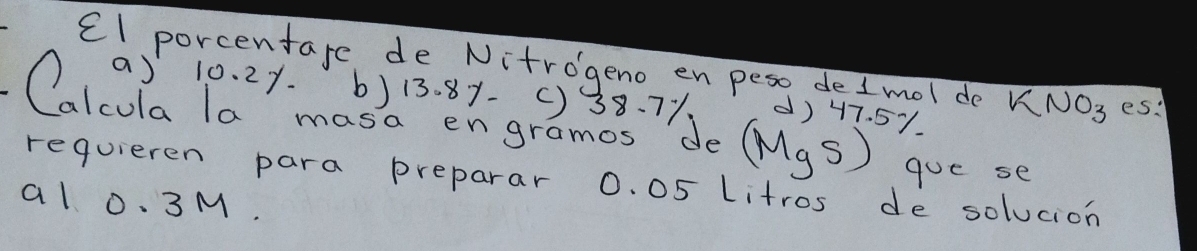 - El porcentaje de Nitrógeno en peso de 1 mol de KNO3 es:
a) 10.2%. b) 13.8%- c) 38.7%. d) 47.5%-
- Calcula la masa en gramos de (MgS) que se
requieren para preparar 0.05 Litros de solución
al 0.3M.